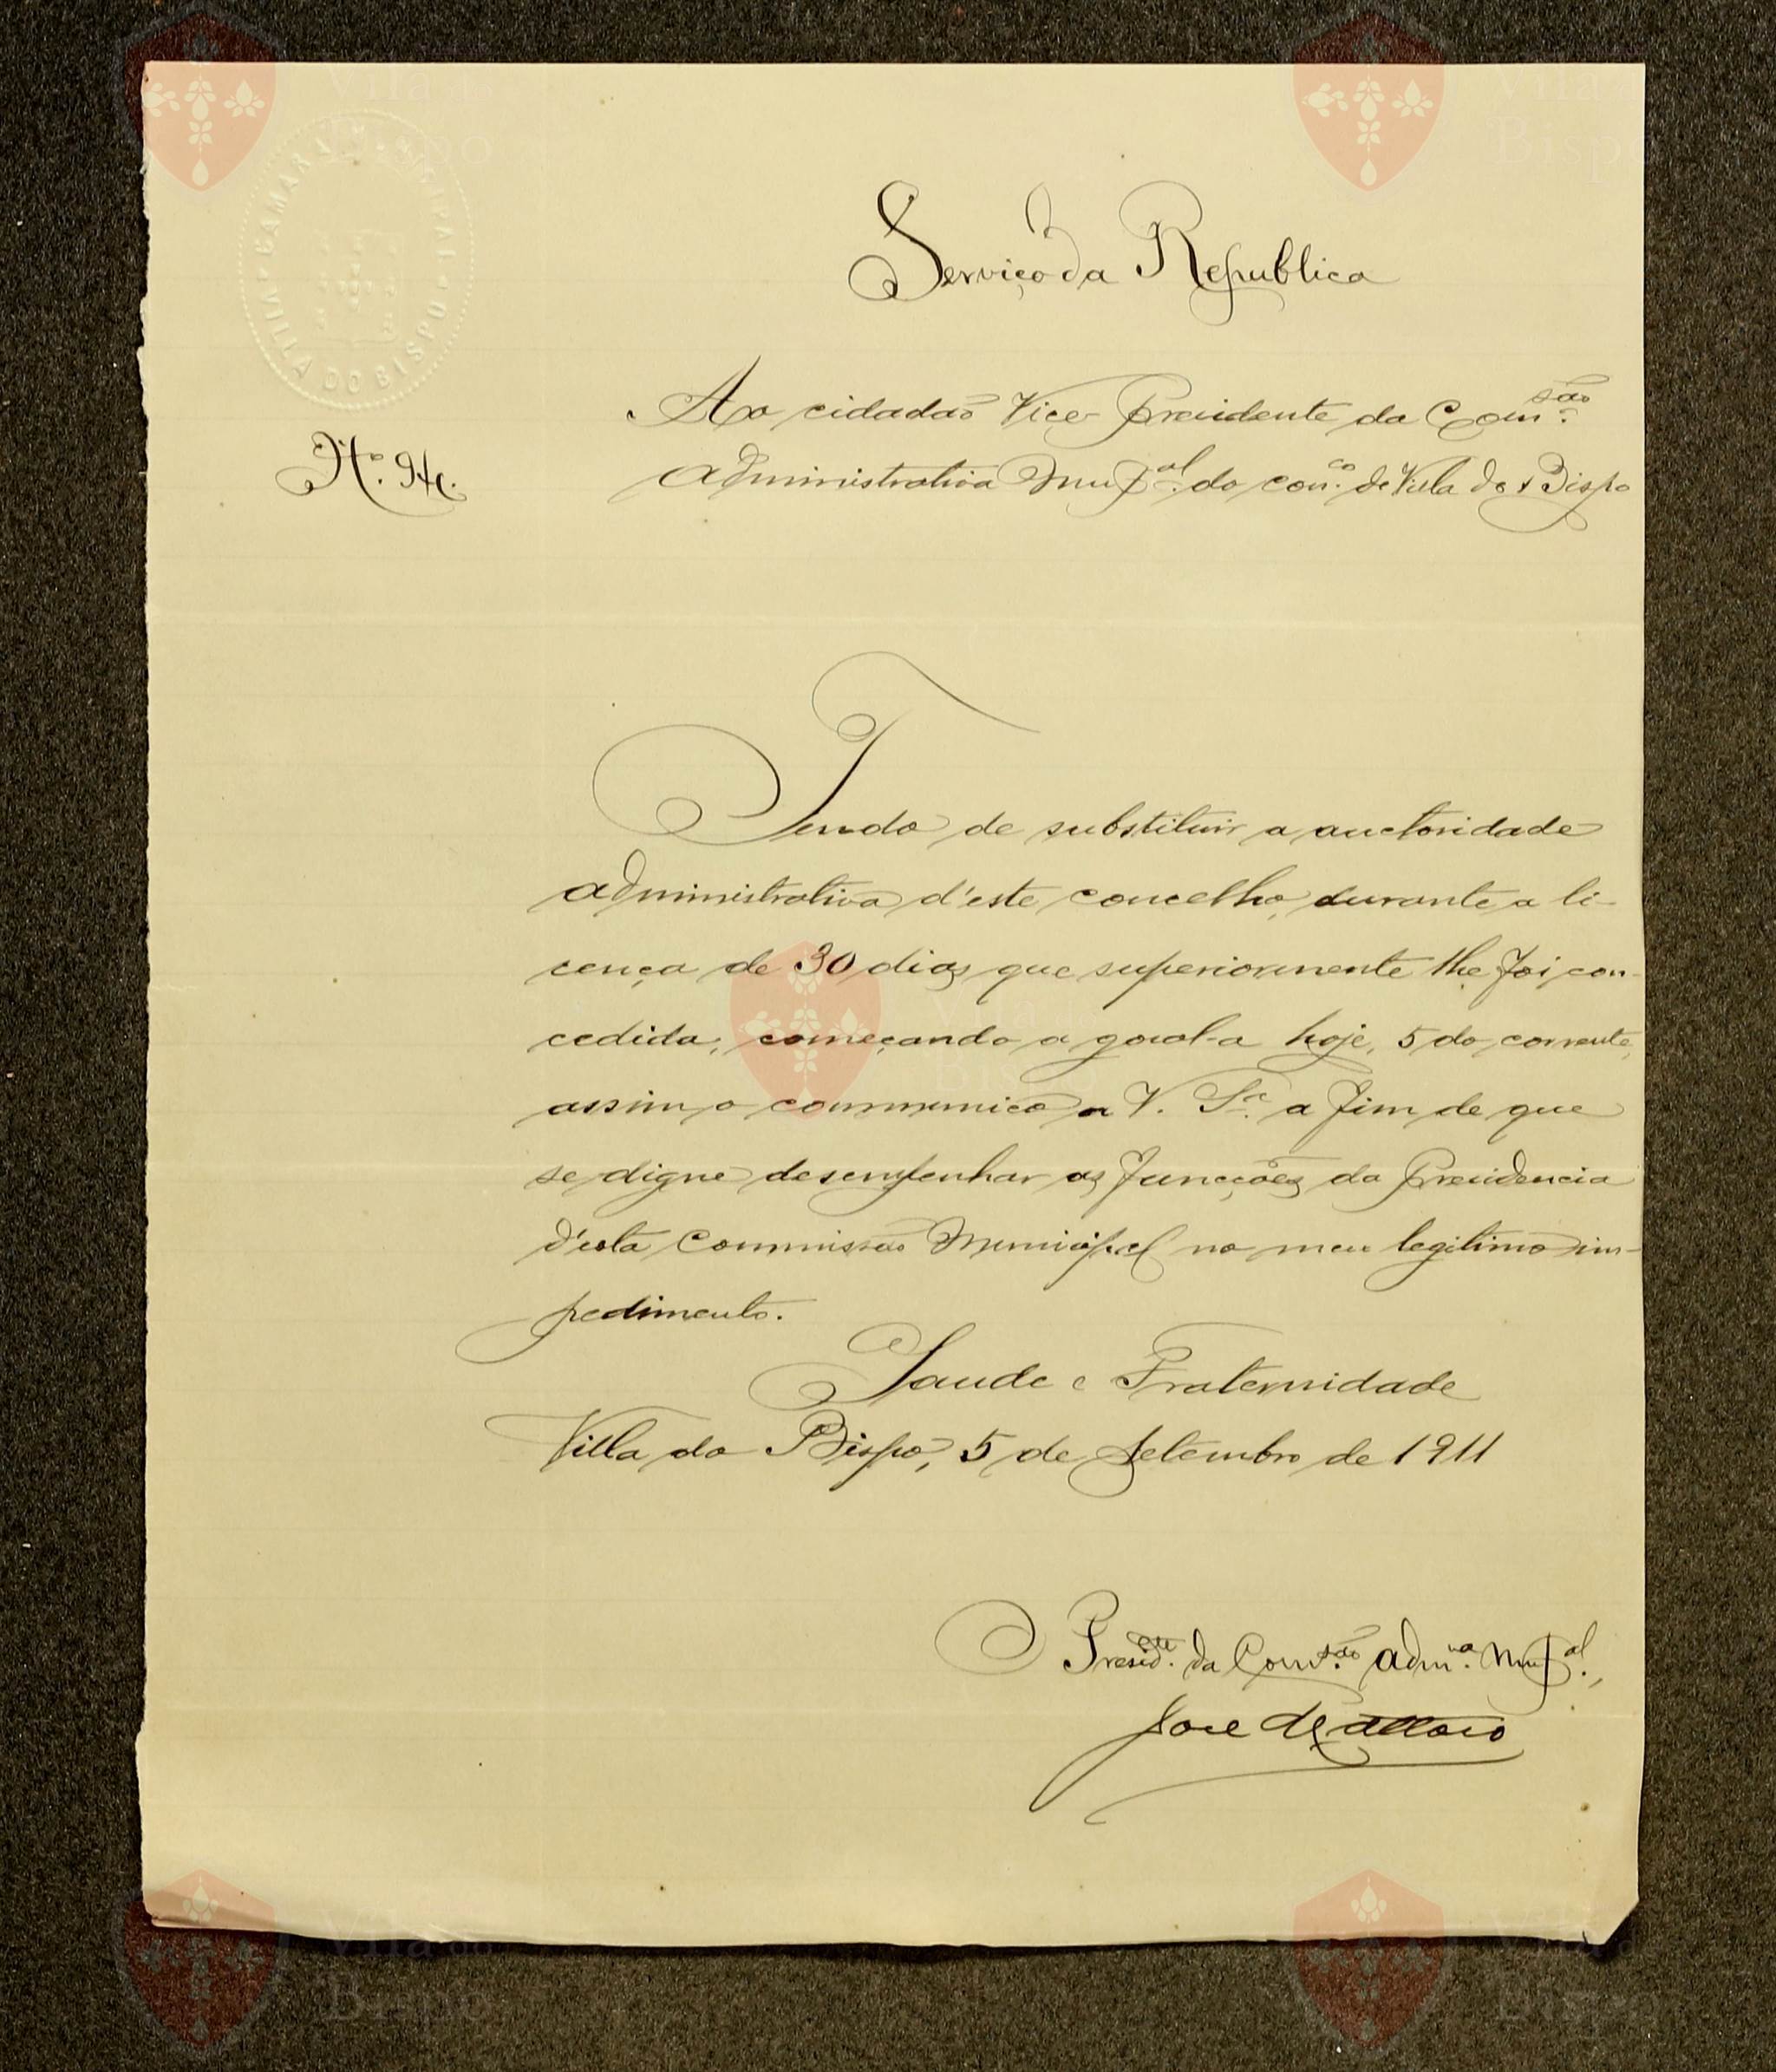 CAMARA MUNICIPAL
VILLA DO BISPO
Serviço da Republica
Ao cidadão Vice-Presidente da Com.são
N.º 94.
Administrativa Mup.al do con.co de Villa do Bispo
Tendo de substituir a auctoridade
administrativa d'este concelho, durante a li-
cença de 30 dias que superiormente lhe foi con-
cedida, começando a gosal-a hoje, 5 do corrente,
assim o communico a V. S.ª a fim de que
se digne desempenhar as funcções da Presidencia
d'esta Commissão Municipal no meu legitimo im-
pedimento.
Saude e Fraternidade
Villa do Bispo, 5 de Setembro de 1911
O Presid.ente da Com.são Adm.va Mup.al,
José de
Vila do
Bispo